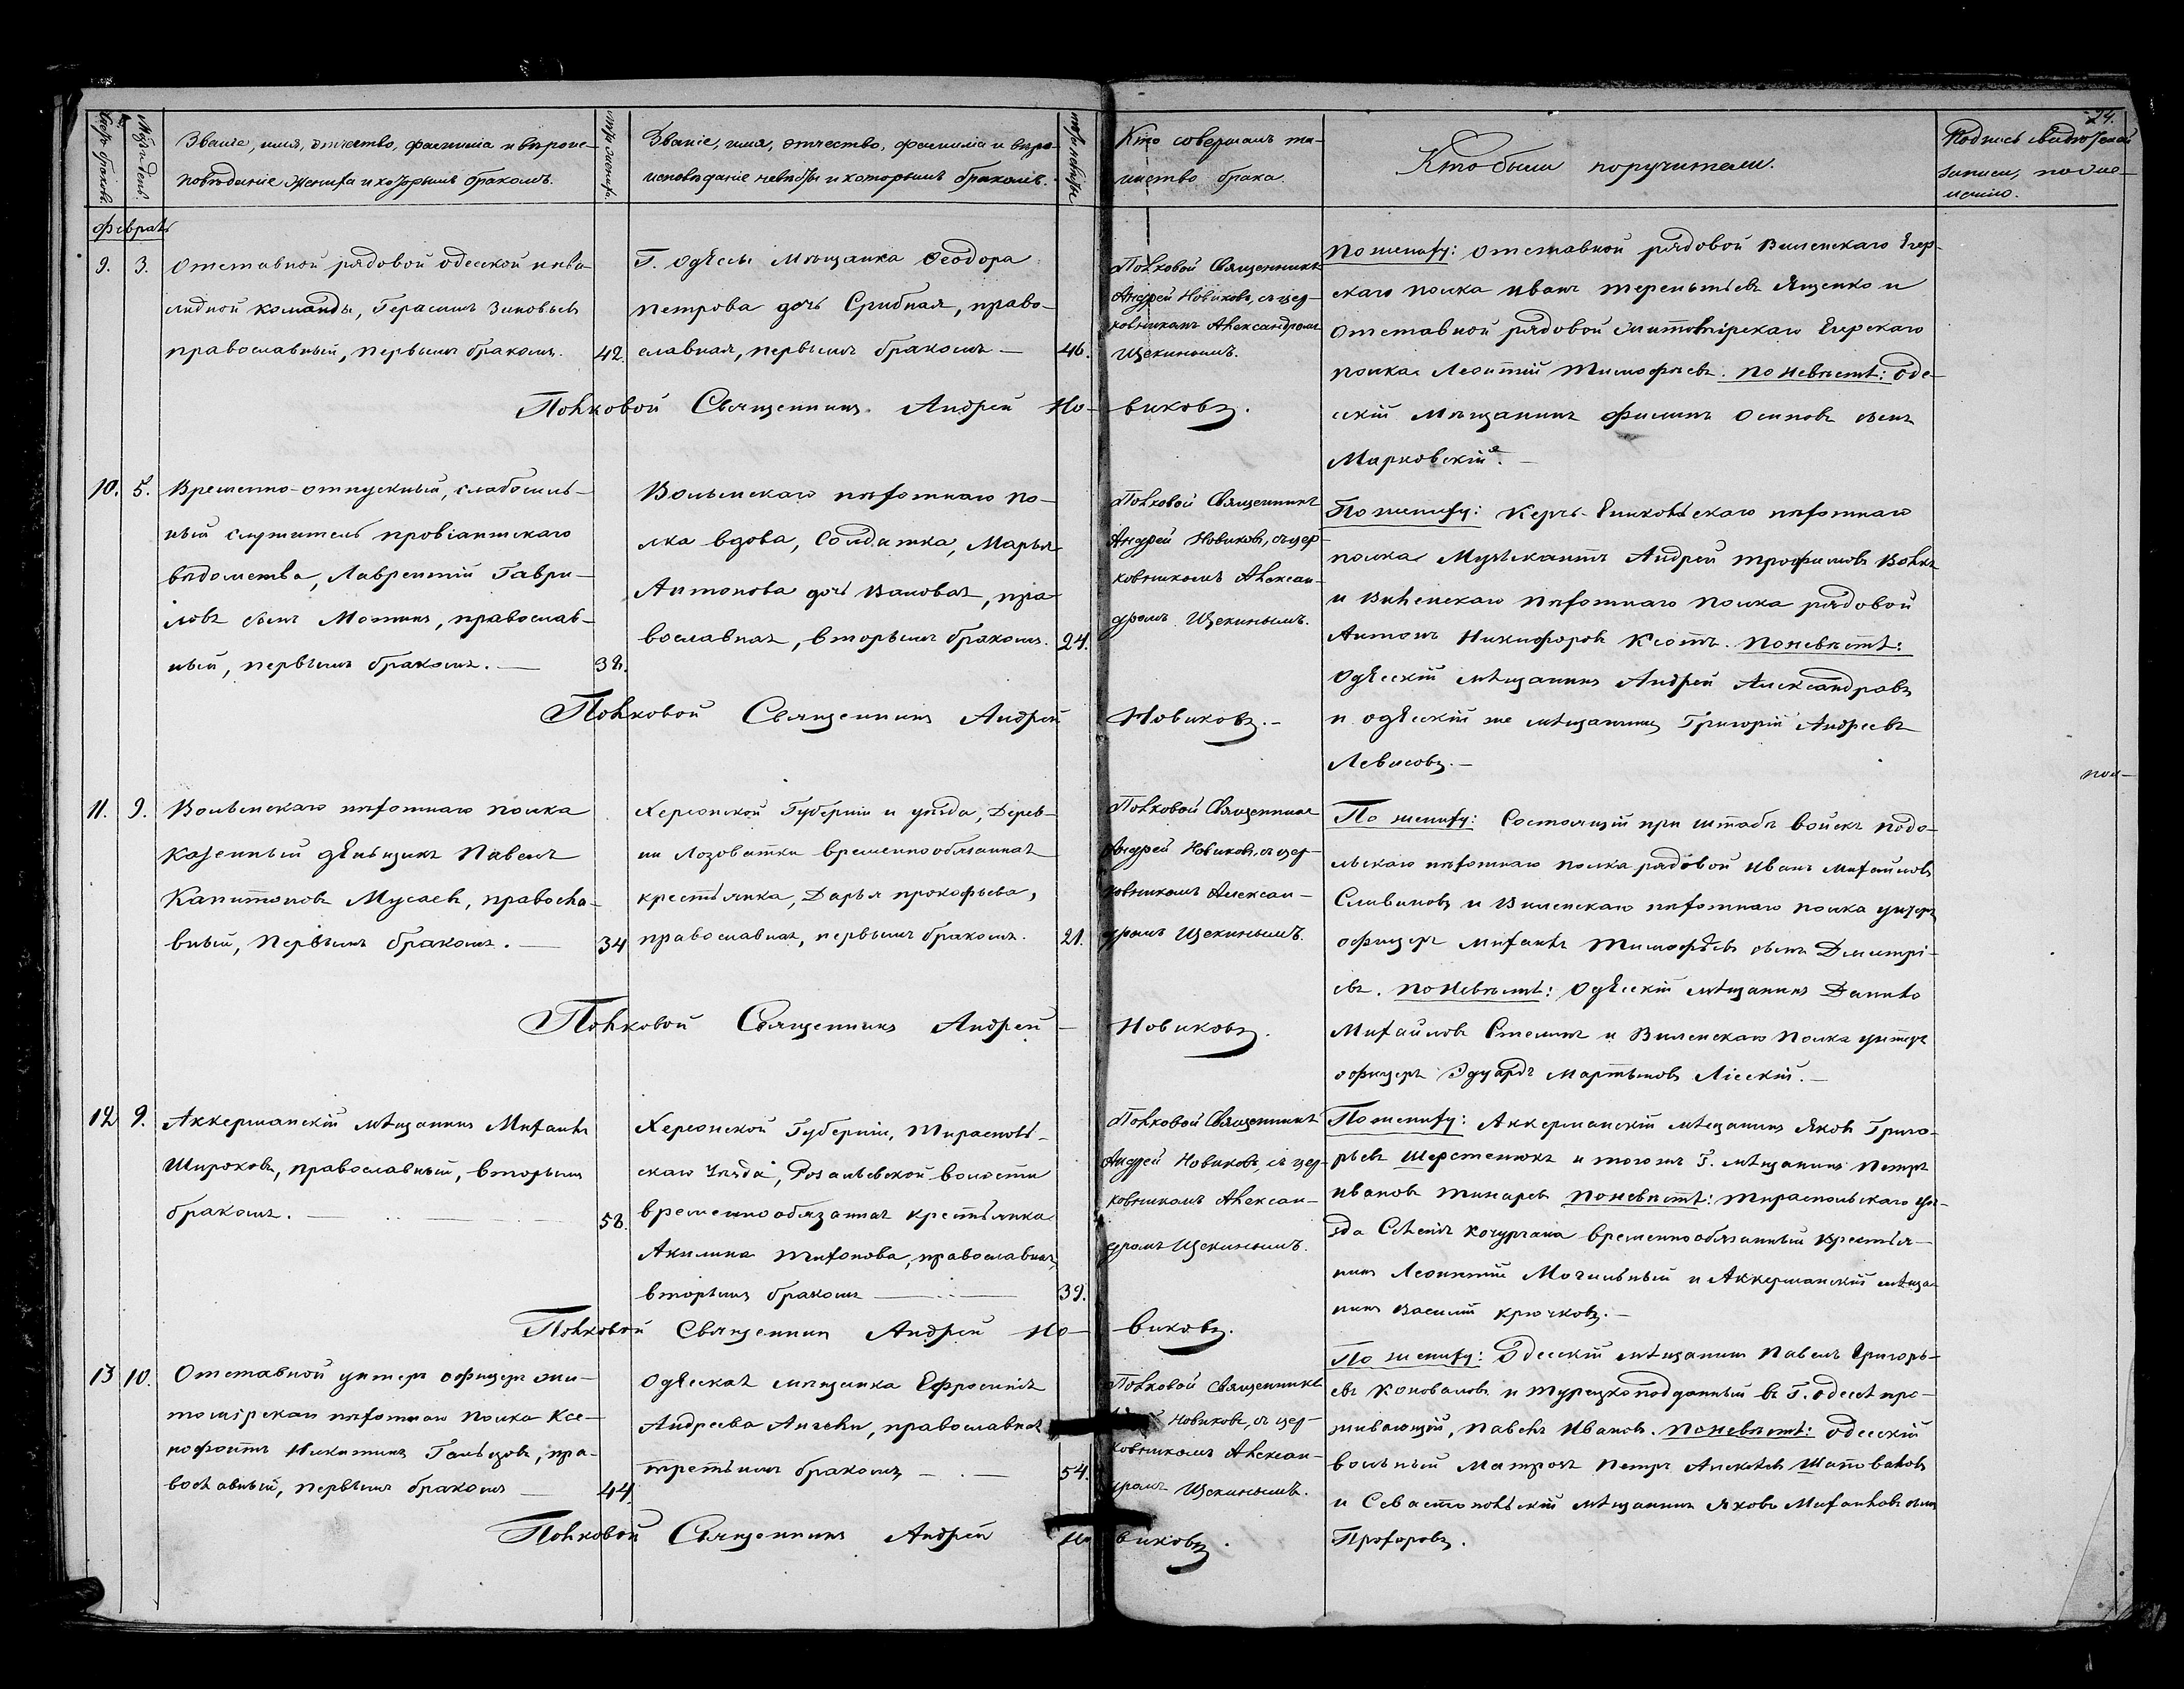 24.
Счетъ браковъ.
Мѣс. и день.
Званіе, имя, отчество, фамилія и вѣроис-
повѣданіе жениха и которымъ бракомъ.
лѣта жениха.
Званіе, имя, отчество, фамилія и вѣро-
исповѣданіе невѣсты и которымъ бракомъ.
лѣта невѣсты
Кто совершалъ та-
инство брака.
Кто были поручители.
Подпись свидѣтелей
записи, по же-
ланію.
Февраль
9. 3. Отставной рядовой одесской инва-
лидной команды, Герасимъ Зиновьевъ
православный, первымъ бракомъ. 42.
Г. Одессы Мѣщанка Ѳеодора
Петрова дочь Срибная, право-
славная, первымъ бракомъ — 46.
Полковой Священникъ
Андрей Новиковъ, съ цер-
ковникомъ Александромъ
Щекинымъ.
По жениху: отставной рядовой Виленскаго Егер-
скаго полка Иванъ Терентьевъ Ященко и
отставной рядовой Житомірскаго Егерскаго
полка Леонтій Тимофѣевъ. По невѣстѣ: Оде-
сскій Мѣщанинъ Филипъ Осиповъ сынъ
Марковскій.—
Полковой Священникъ Андрей Но-виковъ.
10. 5. Временно-отпускный, слабосиль-
ный служитель провіантскаго
вѣдомства, Лаврентій Гаври-
ловъ сынъ Мотинъ, православ-
ный, первымъ бракомъ.— 38.
Волынскаго пѣхотнаго по-
лка вдова, Солдатка, Марья
Антонова дочь Ваковая, пра-
вославная, вторымъ бракомъ. 24.
Полковой Священникъ
Андрей Новиковъ, съ цер-
ковникомъ Алексан-
дромъ Щекинымъ.
По жениху: Керчь-Ениколѣскаго пѣхотнаго
полка Музыкантъ Андрей Трофимовъ Волкъ
и Виленскаго пѣхотнаго полка рядовой
Антонъ Никифоровъ Клотъ. По невѣстѣ:
Одесскій мѣщанинъ Андрей Александравъ
и одесскій же мѣщанинъ Григорій Андреевъ
Левисовъ.—
Полковой Священникъ Андрей Новиковъ.—
пол-
11. 9. Волынскаго пѣхотнаго полка
казенный деньщикъ Павелъ
Капитоновъ Мусаевъ, правосла-
вный, первымъ бракомъ.— 34
Херсонской Губерніи и уѣзда, Дерев-
ни Лозоватки временнообязанная
крестьянка, Дарья Прокофьева,
православная, первымъ бракомъ. 21.
Полковой Священникъ
Андрей Новиковъ, съ цер-
ковникомъ Алексан-
дромъ Щекинымъ.
По жениху: Состоящій при штабѣ войскъ подо-
льскаго пѣхотнаго полка рядовой Иванъ Михайловъ
Сливиновъ и Виленскаго пѣхотнаго полка унтеръ
офицеръ Михаилъ Тимофѣевъ сынъ Дмитрі-
евъ. По невѣстѣ: Одесскій мѣщанинъ Данило
Михайловъ Стелинъ и Виленскаго полка унтеръ
офицеръ Эдуардъ Мартыновъ Лісскій.—
Полковой Священникъ Андрей — Новиковъ.
12 9. Аккерманскій мѣщанинъ Михаилъ
Широковъ, православный, вторымъ
бракомъ.— 58.
Херсонской Губерніи, Тирасполь-
скаго Уѣзда, Розальевской волости
временнообязанная крестьянка
Акилина Тихонова, православная,
вторымъ бракомъ — 39.
Полковой Священникъ
Андрей Новиковъ, съ цер-
ковникомъ Алексан-
дромъ Щекинымъ.
По жениху: Аккерманскій мѣщанинъ Яковъ Григо-
рьевъ Шерстенюкъ и тогожъ Г. мѣщанинъ Петръ
Ивановъ Тинаревъ По невѣстѣ: Тираспольскаго уѣ-
зда Селенія Кочургана временнообязанный крестья-
нинъ Леонтій Могильный и Аккерманскій мѣща-
нинъ Василій Крючковъ.—
Полковой Священникъ Андрей Но-виковъ.
13 10. Отставной унтеръ офицеръ жи-
томірскаго пѣхотнаго полка Ксе-
нофонтъ Никитинъ Гальцовъ, пра-
вославный, первымъ бракомъ — 44
Одесская мѣщанка Ефросинія
Андреева Ангели, православная
третьимъ бракомъ — 54.
Полковой Священникъ
Новиковъ, съ цер-
ковникомъ Алексан-
дромъ Щекинымъ.
По жениху: Одесскій мѣщанинъ Павелъ Григорь-
евъ Коноваловъ и турецкоподданный въ Г. Одессѣ про-
живающій, Павелъ Ивановъ. По невѣстѣ: Одесскій
вольный матрозъ Петръ Алексѣевъ Шаповаловъ
и Севастопольскій мѣщанинъ Яковъ Михайловъ сынъ
Прохоровъ.
Полковой Священникъ Андрей Но виковъ.